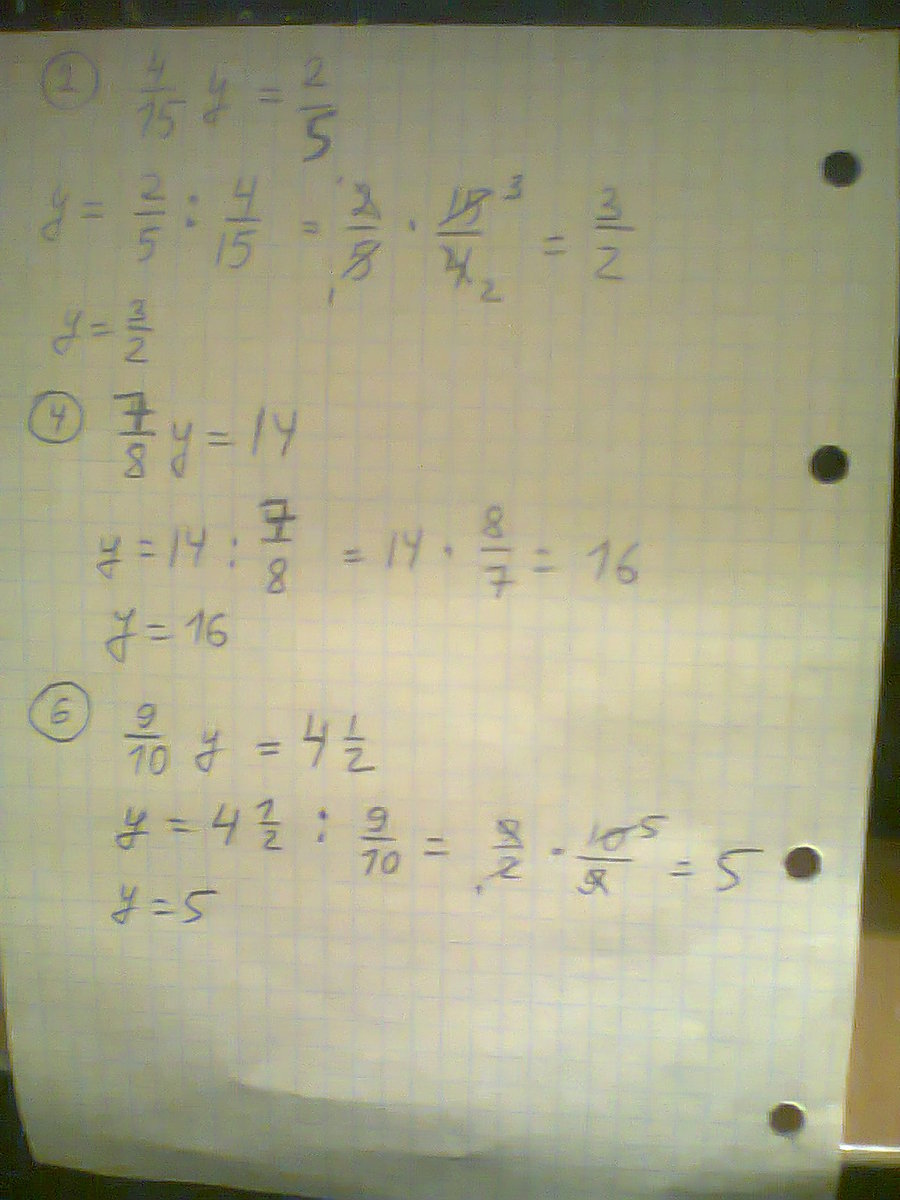 2 4/15 y = 2/5
y = 2/5 : 4/15 = 2/5 · 15/4 3 1 2 = 3/2
y = 3/2
4 7/8 y = 14
y = 14 : 7/8 = 14 · 8/7 = 16
y = 16
6 9/10 y = 4 1/2
y = 4 1/2 : 9/10 = 9/2 · 10/9 5 = 5
y = 5